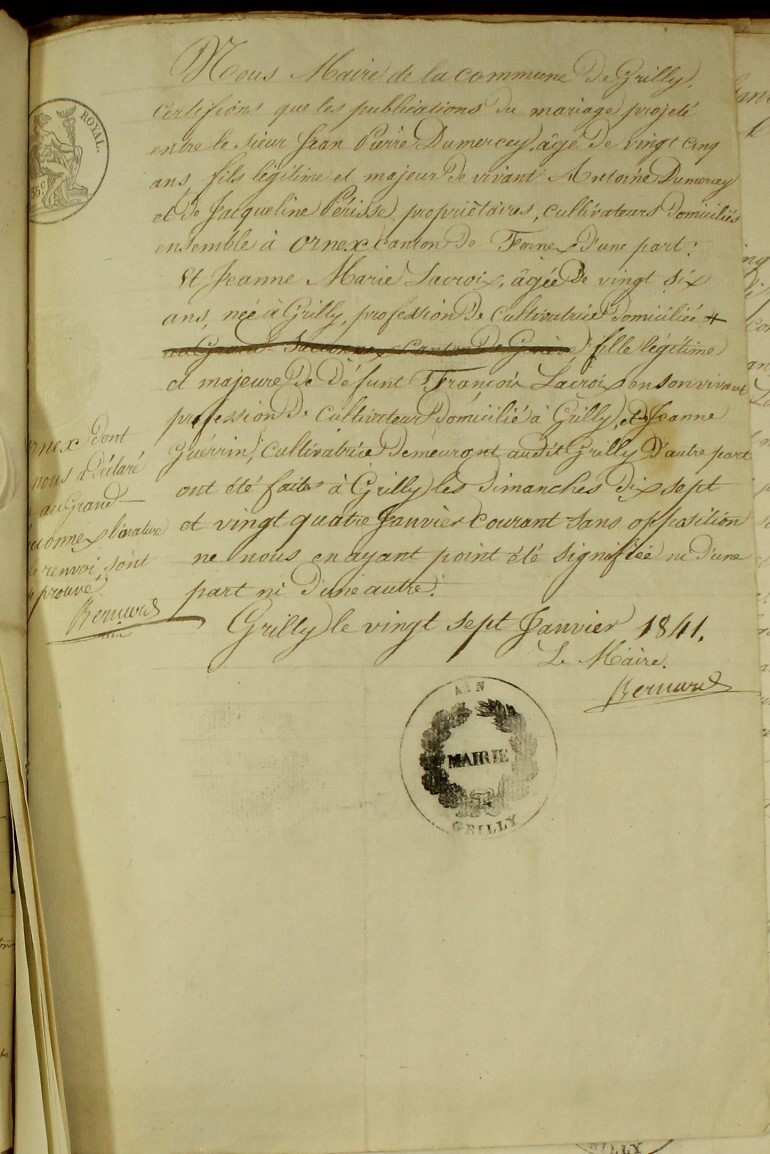 Nous Maire de la commune de Grilly,
certifions que les publications du mariage projeté
entre le sieur Jean Pierre Dumercey, âgé de vingt cinq
ans, fils légitime et majeur de vivant Antoine Dumercey
et de Jacqueline Périsse, propriétaires, cultivateurs domiciliés
ensemble à Ornex canton de Fernex d'une part:
Et Jeanne Marie Lacroix, âgée de vingt six
ans, née à Grilly, profession de cultivatrice domiciliée +
au Grand Saconnex Canton de Genève fille légitime
et majeure de défunt François Lacroix en son vivant
profession de cultivateur domicilié à Grilly, et Jeanne
Guérrin, cultivatrice demeurant audit Grilly d'autre part
ont été faites à Grilly les dimanches dix sept
et vingt quatre Janvier courant sans opposition
ne nous en ayant point été signifiée ni d'une
part ni d'une autre.
Grilly le vingt sept Janvier 1841.
Le Maire.
Bernard
ornex dont
nous a déclaré
au Grand
renvoi, sont
Bernard
ROYAL.
35c
AIN
MAIRIE
GRILLY
RILLY